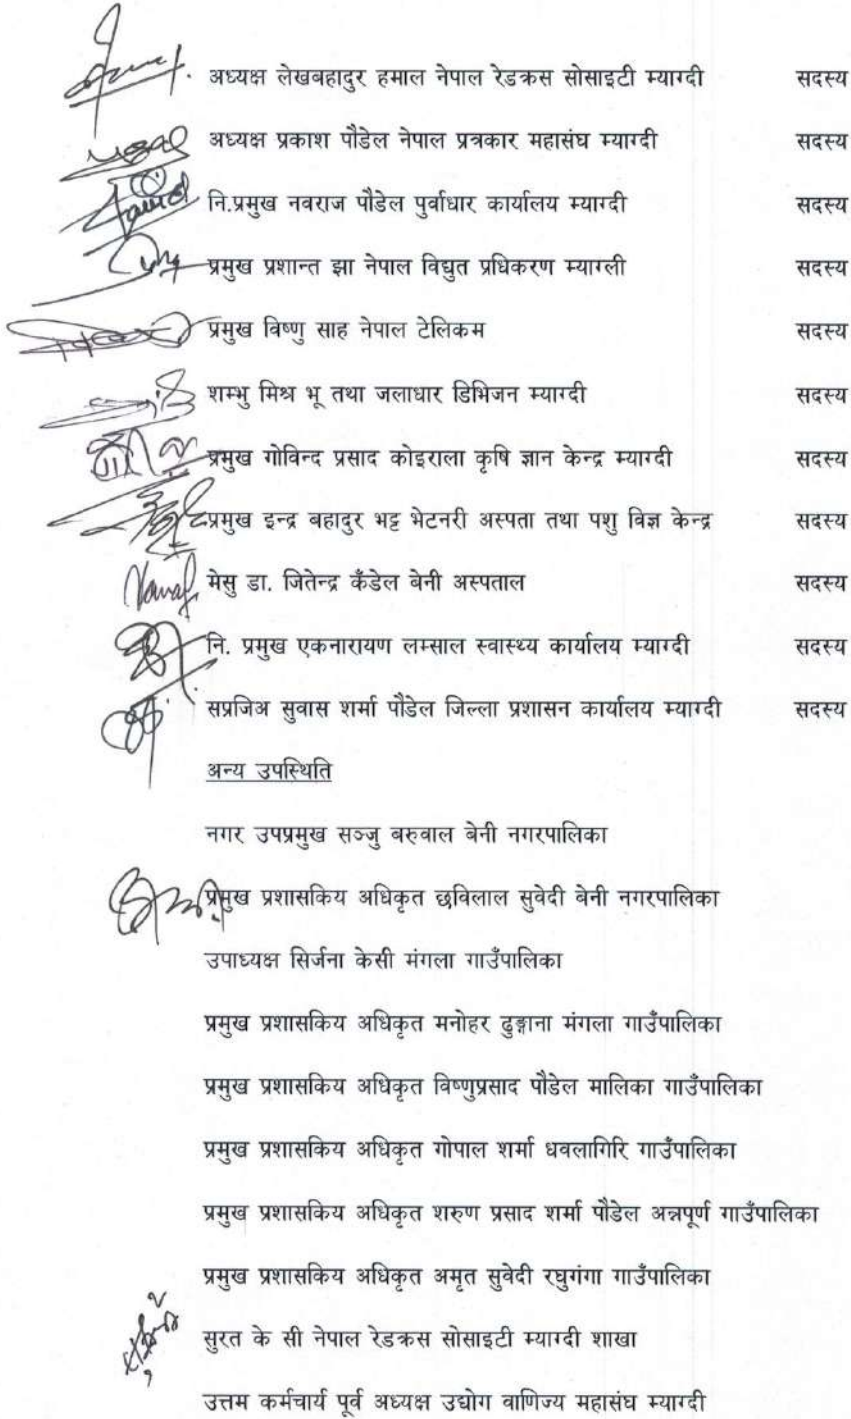 अध्यक्ष लेखबहादुर हमाल नेपाल रेडक्रस सोसाइटी म्याग्दी सदस्य
अध्यक्ष प्रकाश पौडेल नेपाल प्रत्रकार महासंघ म्याग्दी सदस्य
नि.प्रमुख नवराज पौडेल पुर्वाधार कार्यालय म्याग्दी सदस्य
प्रमुख प्रशान्त झा नेपाल विद्युत प्रधिकरण म्याग्ली सदस्य
प्रमुख विष्णु साह नेपाल टेलिकम सदस्य
शम्भु मिश्र भू तथा जलाधार डिभिजन म्याग्दी सदस्य
प्रमुख गोविन्द प्रसाद कोइराला कृषि ज्ञान केन्द्र म्याग्दी सदस्य
प्रमुख इन्द्र बहादुर भट्ट भेटनरी अस्पता तथा पशु विज्ञ केन्द्र सदस्य
मेसु डा. जितेन्द्र कँडेल बेनी अस्पताल सदस्य
नि. प्रमुख एकनारायण लम्साल स्वास्थ्य कार्यालय म्याग्दी सदस्य
सप्रजिअ सुवास शर्मा पौडेल जिल्ला प्रशासन कार्यालय म्याग्दी सदस्य
अन्य उपस्थिति
नगर उपप्रमुख सञ्जु बरुवाल बेनी नगरपालिका
प्रमुख प्रशासकिय अधिकृत छविलाल सुवेदी बेनी नगरपालिका
उपाध्यक्ष सिर्जना केसी मंगला गाउँपालिका
प्रमुख प्रशासकिय अधिकृत मनोहर ढुङ्गाना मंगला गाउँपालिका
प्रमुख प्रशासकिय अधिकृत विष्णुप्रसाद पौडेल मालिका गाउँपालिका
प्रमुख प्रशासकिय अधिकृत गोपाल शर्मा धवलागिरि गाउँपालिका
प्रमुख प्रशासकिय अधिकृत शरुण प्रसाद शर्मा पौडेल अन्नपूर्ण गाउँपालिका
प्रमुख प्रशासकिय अधिकृत अमृत सुवेदी रघुगंगा गाउँपालिका
सुरत के सी नेपाल रेडक्रस सोसाइटी म्याग्दी शाखा
उत्तम कर्मचार्य पूर्व अध्यक्ष उद्योग वाणिज्य महासंघ म्याग्दी